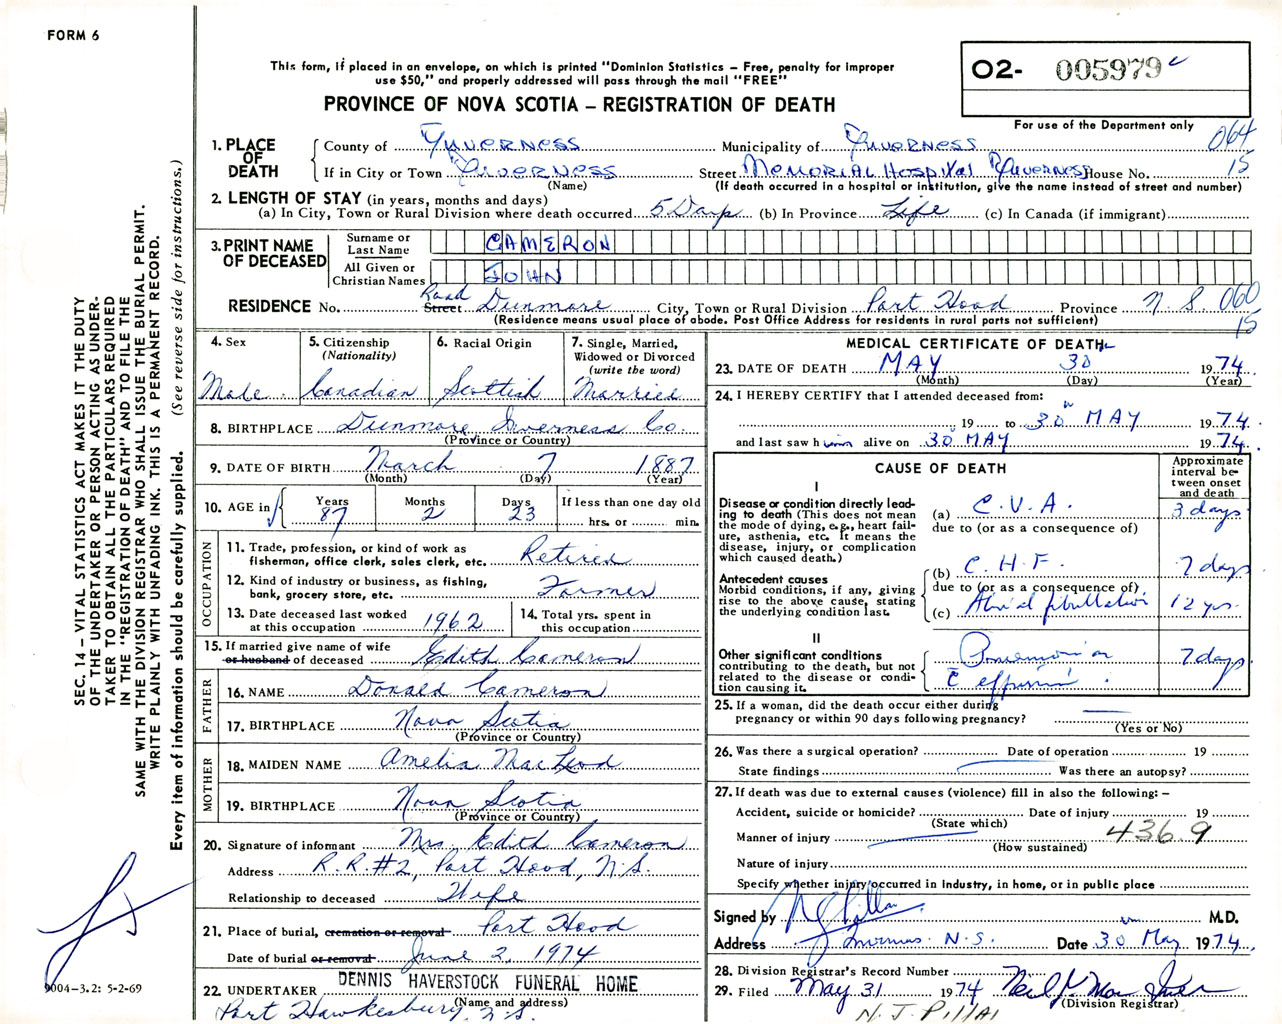 FORM 6
This form, if placed in an envelope, on which is printed "Dominion Statistics – Free, penalty for improper
use $50," and properly addressed will pass through the mail "FREE"
PROVINCE OF NOVA SCOTIA – REGISTRATION OF DEATH
O2- 005979
For use of the Department only
064
15
1. PLACE OF DEATH
County of Inverness Municipality of Inverness
If in City or Town Inverness Street Memorial Hospital Inverness House No.
(Name) (If death occurred in a hospital or institution, give the name instead of street and number)
2. LENGTH OF STAY (in years, months and days)
(a) In City, Town or Rural Division where death occurred 5 Days (b) In Province Life (c) In Canada (if immigrant)
3. PRINT NAME OF DECEASED
Surname or Last Name CAMERON
All Given or Christian Names JOHN
RESIDENCE No. Street Road Dunmore City, Town or Rural Division Port Hood Province N.S. 060
15
(Residence means usual place of abode. Post Office Address for residents in rural parts not sufficient)
4. Sex Male
5. Citizenship (Nationality) Canadian
6. Racial Origin Scottish
7. Single, Married, Widowed or Divorced (write the word) Married
8. BIRTHPLACE Dunmore Inverness Co.
(Province or Country)
9. DATE OF BIRTH March 7 1887
(Month) (Day) (Year)
10. AGE in Years 87 Months 2 Days 23 If less than one day old hrs. or min.
OCCUPATION
11. Trade, profession, or kind of work as fisherman, office clerk, sales clerk, etc. Retired
12. Kind of industry or business, as fishing, bank, grocery store, etc. Farmer
13. Date deceased last worked at this occupation 1962
14. Total yrs. spent in this occupation
15. If married give name of wife or husband of deceased Edith Cameron
FATHER
16. NAME Donald Cameron
17. BIRTHPLACE Nova Scotia
(Province or Country)
MOTHER
18. MAIDEN NAME Amelia MacLeod
19. BIRTHPLACE Nova Scotia
(Province or Country)
20. Signature of informant Mrs. Edith Cameron
Address R.R.#2, Port Hood, N.S.
Relationship to deceased Wife
21. Place of burial, cremation or removal Port Hood
Date of burial or removal June 2, 1974
22. UNDERTAKER DENNIS HAVERSTOCK FUNERAL HOME
(Name and address)
Port Hawkesbury, N.S.
MEDICAL CERTIFICATE OF DEATH
23. DATE OF DEATH MAY 30 1974
(Month) (Day) (Year)
24. I HEREBY CERTIFY that I attended deceased from:
19 to 30 MAY 1974
and last saw him alive on 30 MAY 1974
CAUSE OF DEATH
Approximate interval between onset and death
I
Disease or condition directly leading to death (This does not mean the mode of dying, e.g., heart failure, asthenia, etc. It means the disease, injury, or complication which caused death.)
(a) C.V.A. 3 days
due to (or as a consequence of)
Antecedent causes
Morbid conditions, if any, giving rise to the above cause, stating the underlying condition last.
(b) C.H.F. 7 days
due to (or as a consequence of)
(c) Atrial fibrillation 12 yrs.
II
Other significant conditions contributing to the death, but not related to the disease or condition causing it.
Pneumonia 7 days
c̄ effusion.
25. If a woman, did the death occur either during pregnancy or within 90 days following pregnancy?
(Yes or No)
26. Was there a surgical operation? Date of operation 19
State findings Was there an autopsy?
27. If death was due to external causes (violence) fill in also the following: –
Accident, suicide or homicide? Date of injury 19
(State which)
Manner of injury 436.9
(How sustained)
Nature of injury
Specify whether injury occurred in industry, in home, or in public place
Signed by N J Pillai M.D.
Address Inverness. N.S. Date 30 May 1974
28. Division Registrar's Record Number
29. Filed May 31 1974
(Division Registrar)
N. J. PILLAI
SEC. 14 – VITAL STATISTICS ACT MAKES IT THE DUTY
OF THE UNDERTAKER OR PERSON ACTING AS UNDER-
TAKER TO OBTAIN ALL THE PARTICULARS REQUIRED
IN THE "REGISTRATION OF DEATH" AND TO FILE THE
SAME WITH THE DIVISION REGISTRAR WHO SHALL ISSUE THE BURIAL PERMIT.
WRITE PLAINLY WITH UNFADING INK. THIS IS A PERMANENT RECORD.
Every item of information should be carefully supplied. (See reverse side for instructions.)
9004-3.2: 5-2-69